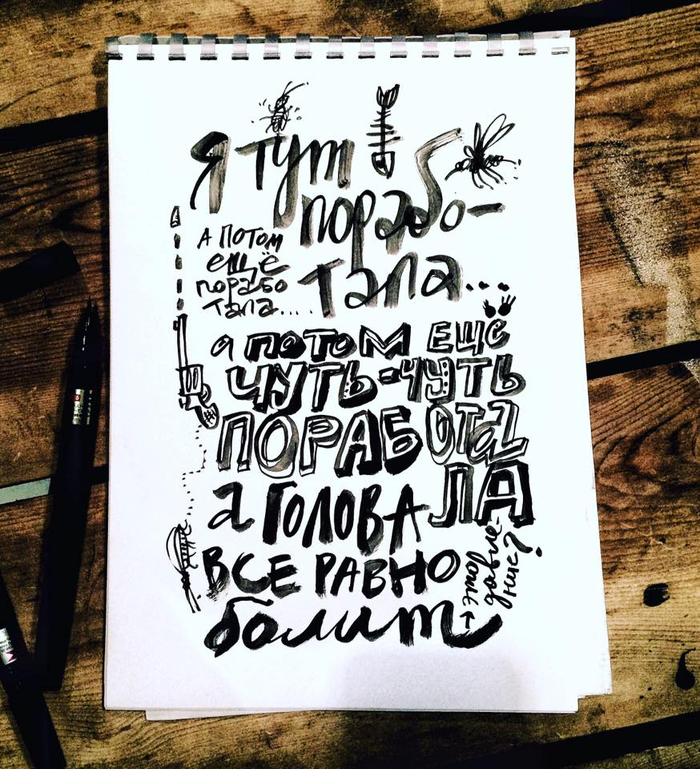 Я тут
порабо-
тала...
а потом
ещё
порабо
тала....
а потом ещё
чуть-чуть
поработа
ла
а голова
все равно
болит
это
давле-
ние?